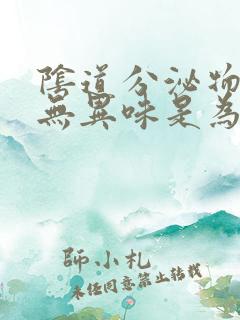 陰道分泌物
無異味是為
師小札
未经同意禁止转载